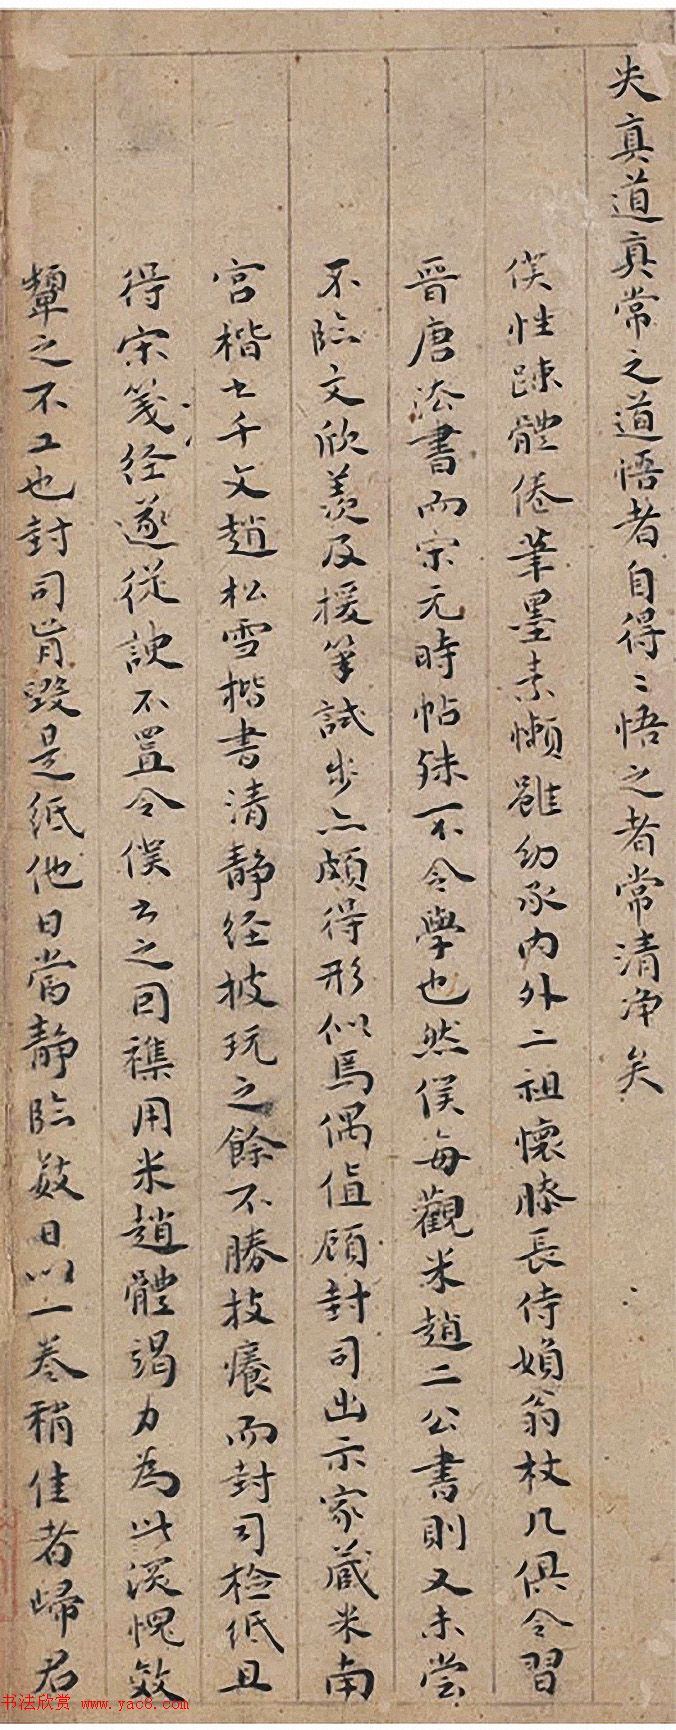 失真道真常之道悟者自得〻悟之者常清净矣
僕性踈體倦筆墨素懶雖幼承内外二祖懷膝長侍婦翁杖几俱令習
晋唐法書而宗元時帖殊不令學也然僕每觀米趙二公書則又未尝
不臨文欣羨及援筆試步亦頗得形似焉偶值顾封司出示家蔵米南
宫楷書千文趙松雪楷書清静经披玩之餘不勝技癢而封司检纸且
得宋箋经遂従諛不置令僕书之因襍用米趙體竭力為此深愧效
顰之不工也封司肯毁是纸他日當静臨數日以一卷稍佳者歸君
书法欣赏 www.yac8.com